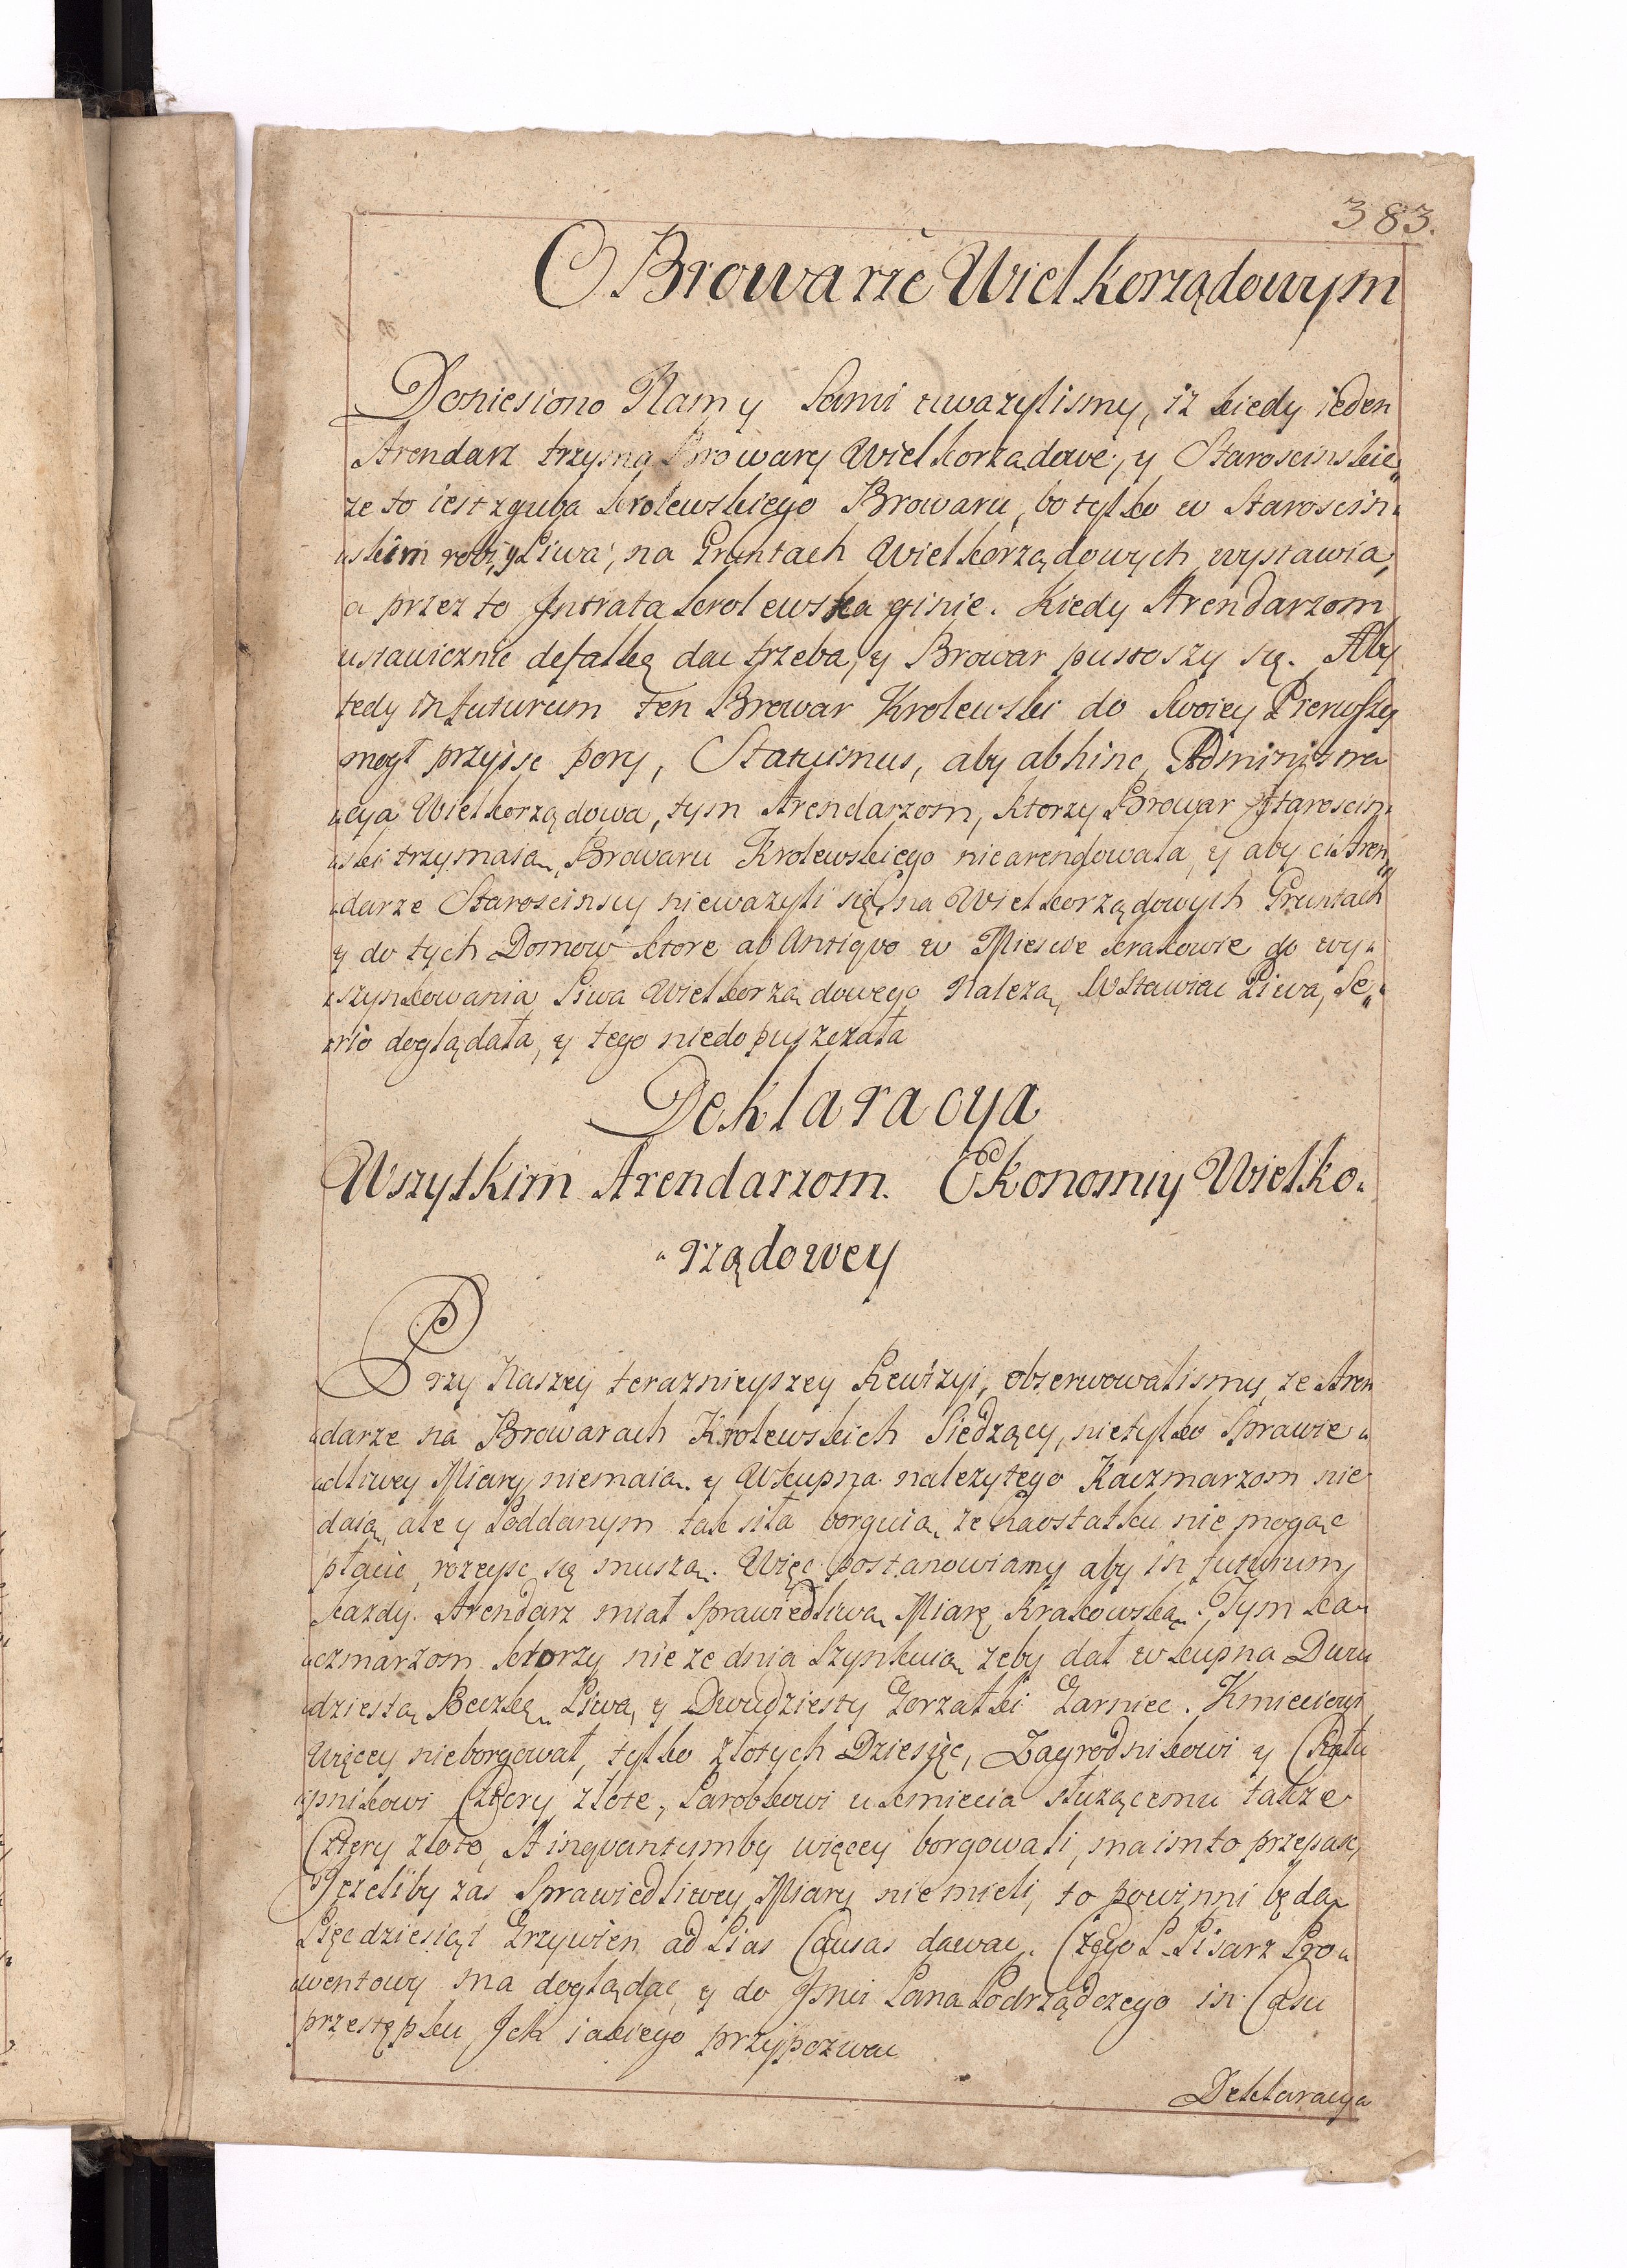 383.
O Browarze Wielkorządowym
Doniesiono Nam y Sami uwazylismy, iz kiedy ieden
Arendarz trzyma Browary Wielkorządowe, y Staroscinskie„
ze to iest zguba krolewskiego Browaru, bo tylko w Staroscin„
„skim robi, y Piwa, na Gruntach Wielkorządowych wystawia,
a przez to Jntrata krolewska ginie. Kiedy Arendarzom
ustawicznie defalkę dac trzeba, y Browar pustoszy się. Aby
tedy in futurum ten Browar Krolewski do Swoiey Pierwszey
mogł przyisc pory, Statuimus, aby abhinc, Administra
„cya Wielkorządowa, tym Arendarzom, ktorzy Browar Staroscin„
„ski trzymaią, Browaru Krolewskiego niearendowała, y aby ci Aren„
„darze Staroscinscy niewazyli się, na Wielkorządowych Gruntach
y do tych Domow ktore ab Antiqvo w Miescie krakowie do wy„
„szynkowania Piwa Wielkorządowego Nalezą, Wstawiac Piwa, Se„
„rio doglądała, y tego niedopuszczała
Deklaracya
Wszytkim Arendarzom Ekonomiy Wielko„
„rządowey
Przy Naszey teraznieyszey Rewizyi, obserwowalismy ze Aren
„darze na Browarach Krolewskich Siedzący, nietylko Sprawie„
„dliwey Miary niemaią y Wkupna nalezytego Kaczmarzom nie
daią, ale y Poddanym tak siła borguią, ze naostatku nie mogąc
płacic, rozeysc się muszą. Więc postanowiamy aby in futurum
kazdy Arendarz miał Sprawiedliwą Miarę Krakowską. Tym ka„
„czmarzom ktorzy nie ze dnia Szynkuią zeby dał wkupna Dwu
„dziestą Beczkę Piwa, y Dwudziesty Gorzałki Garniec. Kmieciowi
Więcey nieborgował, tylko złotych Dziesięc, Zagrodnikowi y Chału
„pnikowi Cztery złote, Parobkowi u kmiecia słuzącemu takze
Cztery złote, A inqvantumby więcey borgowali, ma im to przepasc,
Jezeliby zas Sprawiedliwey Miary niemieli, to powinni będą
Pięcdziesiąt Grzywien ad Pias Causas dawac. Czego P. Pisarz Pro„
„wentowy ma doglądac y do Jmci Pana Podrządczego in Casu
przestępku Jch iakiego przypozwac
Deklaracya